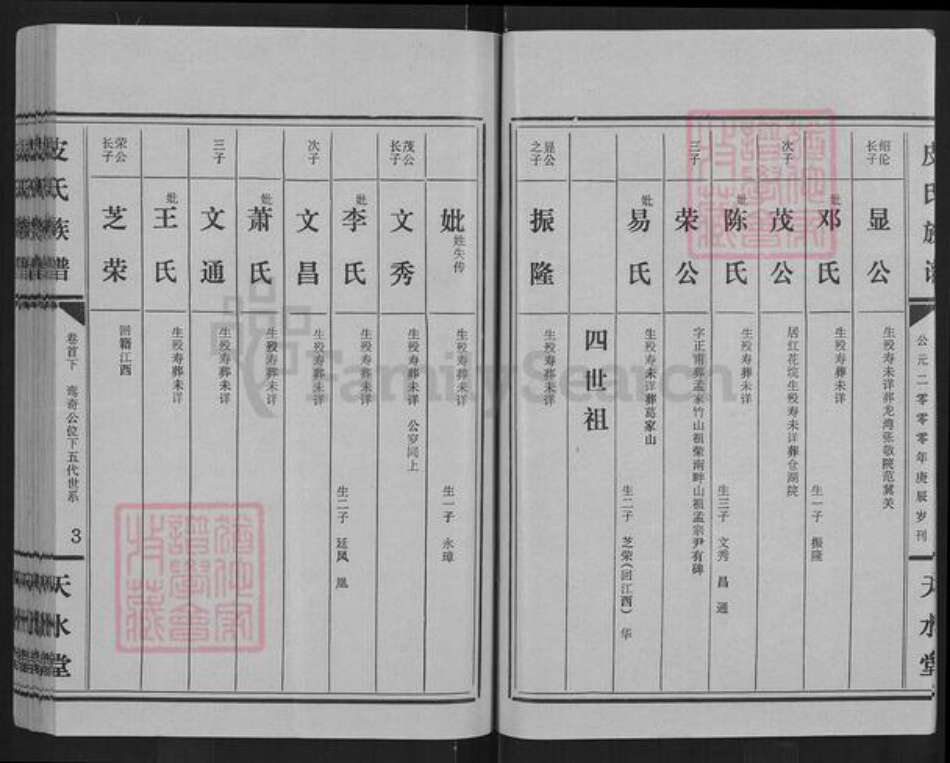 皮氏族谱
公元二零零零年庚辰岁刊
天水堂
绍伦长子
显公
生殁寿未详葬龙湾张敬院范冀关
妣邓氏
生殁寿葬未详
生一子 振隆
次子
茂公
居红花垸生殁寿未详葬仓湖院
妣陈氏
生殁寿葬未详
生三子 文秀 昌 通
三子
荣公
字正甫葬孟家竹山祖茔南畔山祖孟宗尹有碑
妣易氏
生殁寿未详葬葛家山
生二子 芝荣(回江西) 华
四世祖
显公之子
振隆
生殁寿葬未详
妣姓失传
生殁寿葬未详
生一子 永璋
茂公长子
文秀
生殁寿葬未详 公穸同上
妣李氏
生殁寿葬未详
生二子 廷凤 凰
次子
文昌
生殁寿葬未详
妣萧氏
生殁寿葬未详
三子
文通
生殁寿葬未详
妣王氏
生殁寿葬未详
荣公长子
芝荣
回籍江西
皮氏族谱
卷首下 鸾奇公位下五代世系
3
天水堂
FamilySearch